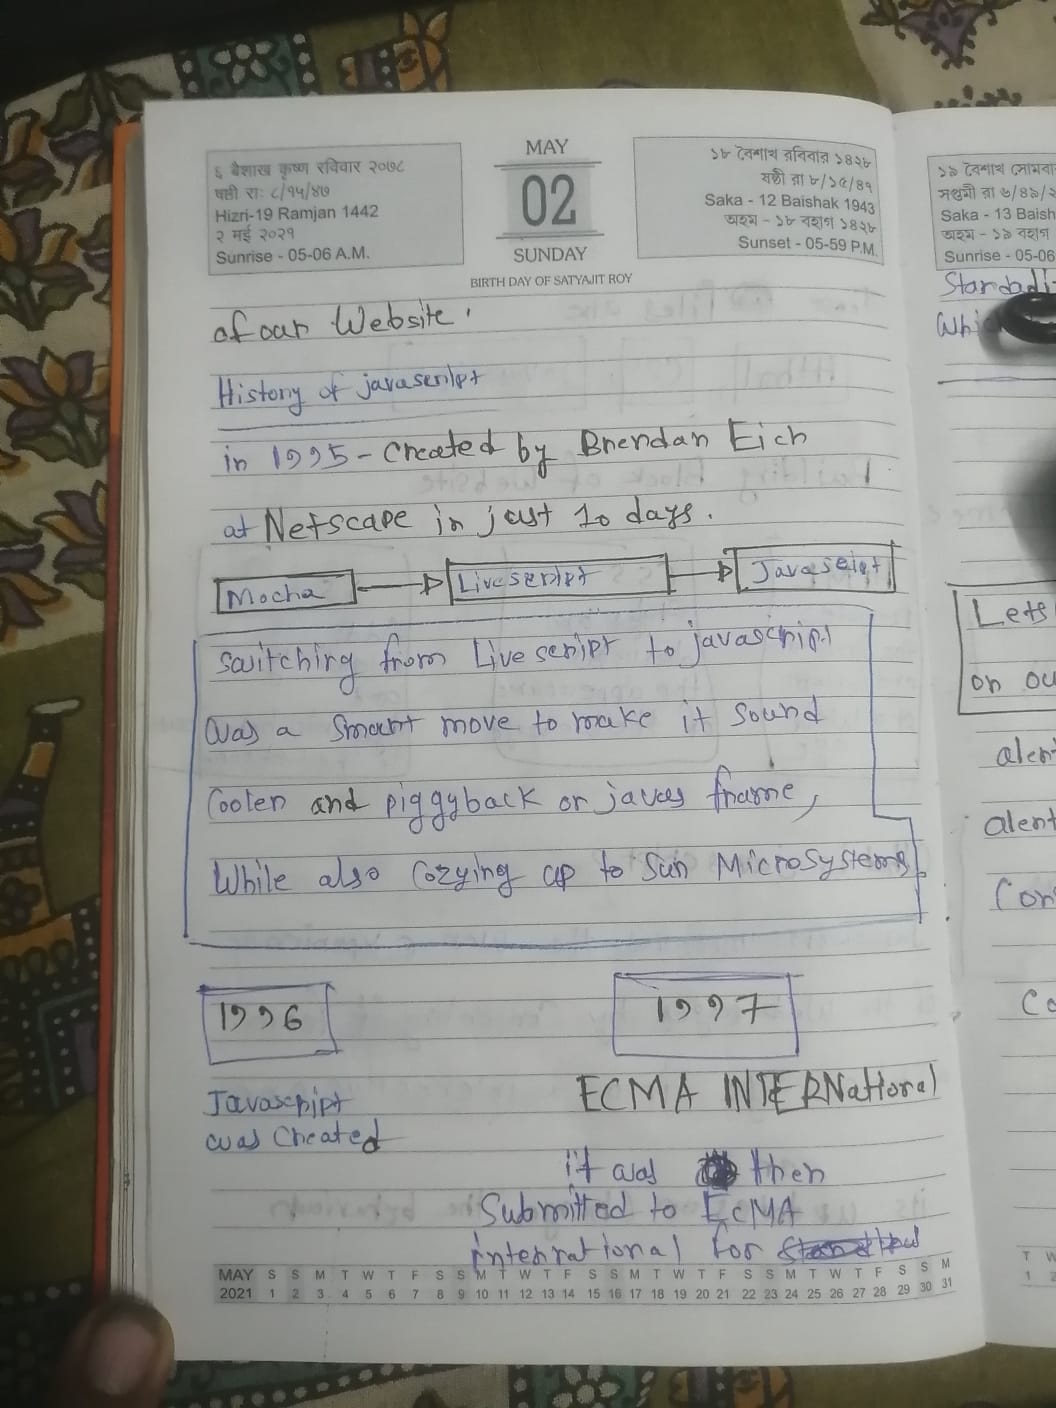 ६ बैशाख कृष्ण रविवार २०७८
षष्ठी राः ८/१५/४७
Hizri-19 Ramjan 1442
२ मई २०२१
Sunrise - 05-06 A.M.
MAY
02
SUNDAY
BIRTH DAY OF SATYAJIT ROY
১৮ বৈশাখ রবিবার ১৪২৮
ষষ্ঠী রা ৮/১৫/৪৭
Saka - 12 Baishak 1943
অহম - ১৮ বহাগ ১৪২৮
Sunset - 05-59 P.M.
of our Website.
History of javascript
in 1995 - Created by Brendan Eich
at Netscape in just 10 days.
Mocha
Livescript
Javascript
Switching from Livescript to javascript
Was a Smart move to make it Sound
Cooler and piggyback or javas fname,
While also Cozying up to Sun MicroSystems
1996
1997
Javascript
was Created
ECMA INTERNational
it was then
Submitted to ECMA
international for
MAY S S M T W T F S S M T W T F S S M T W T F S S M T W T F S S M
2021 1 2 3 4 5 6 7 8 9 10 11 12 13 14 15 16 17 18 19 20 21 22 23 24 25 26 27 28 29 30 31
Saka - 13 Baish
Sunrise - 05-06
Standadi
Lets
on ou
alert
alert
Con
Co
T W
1 2